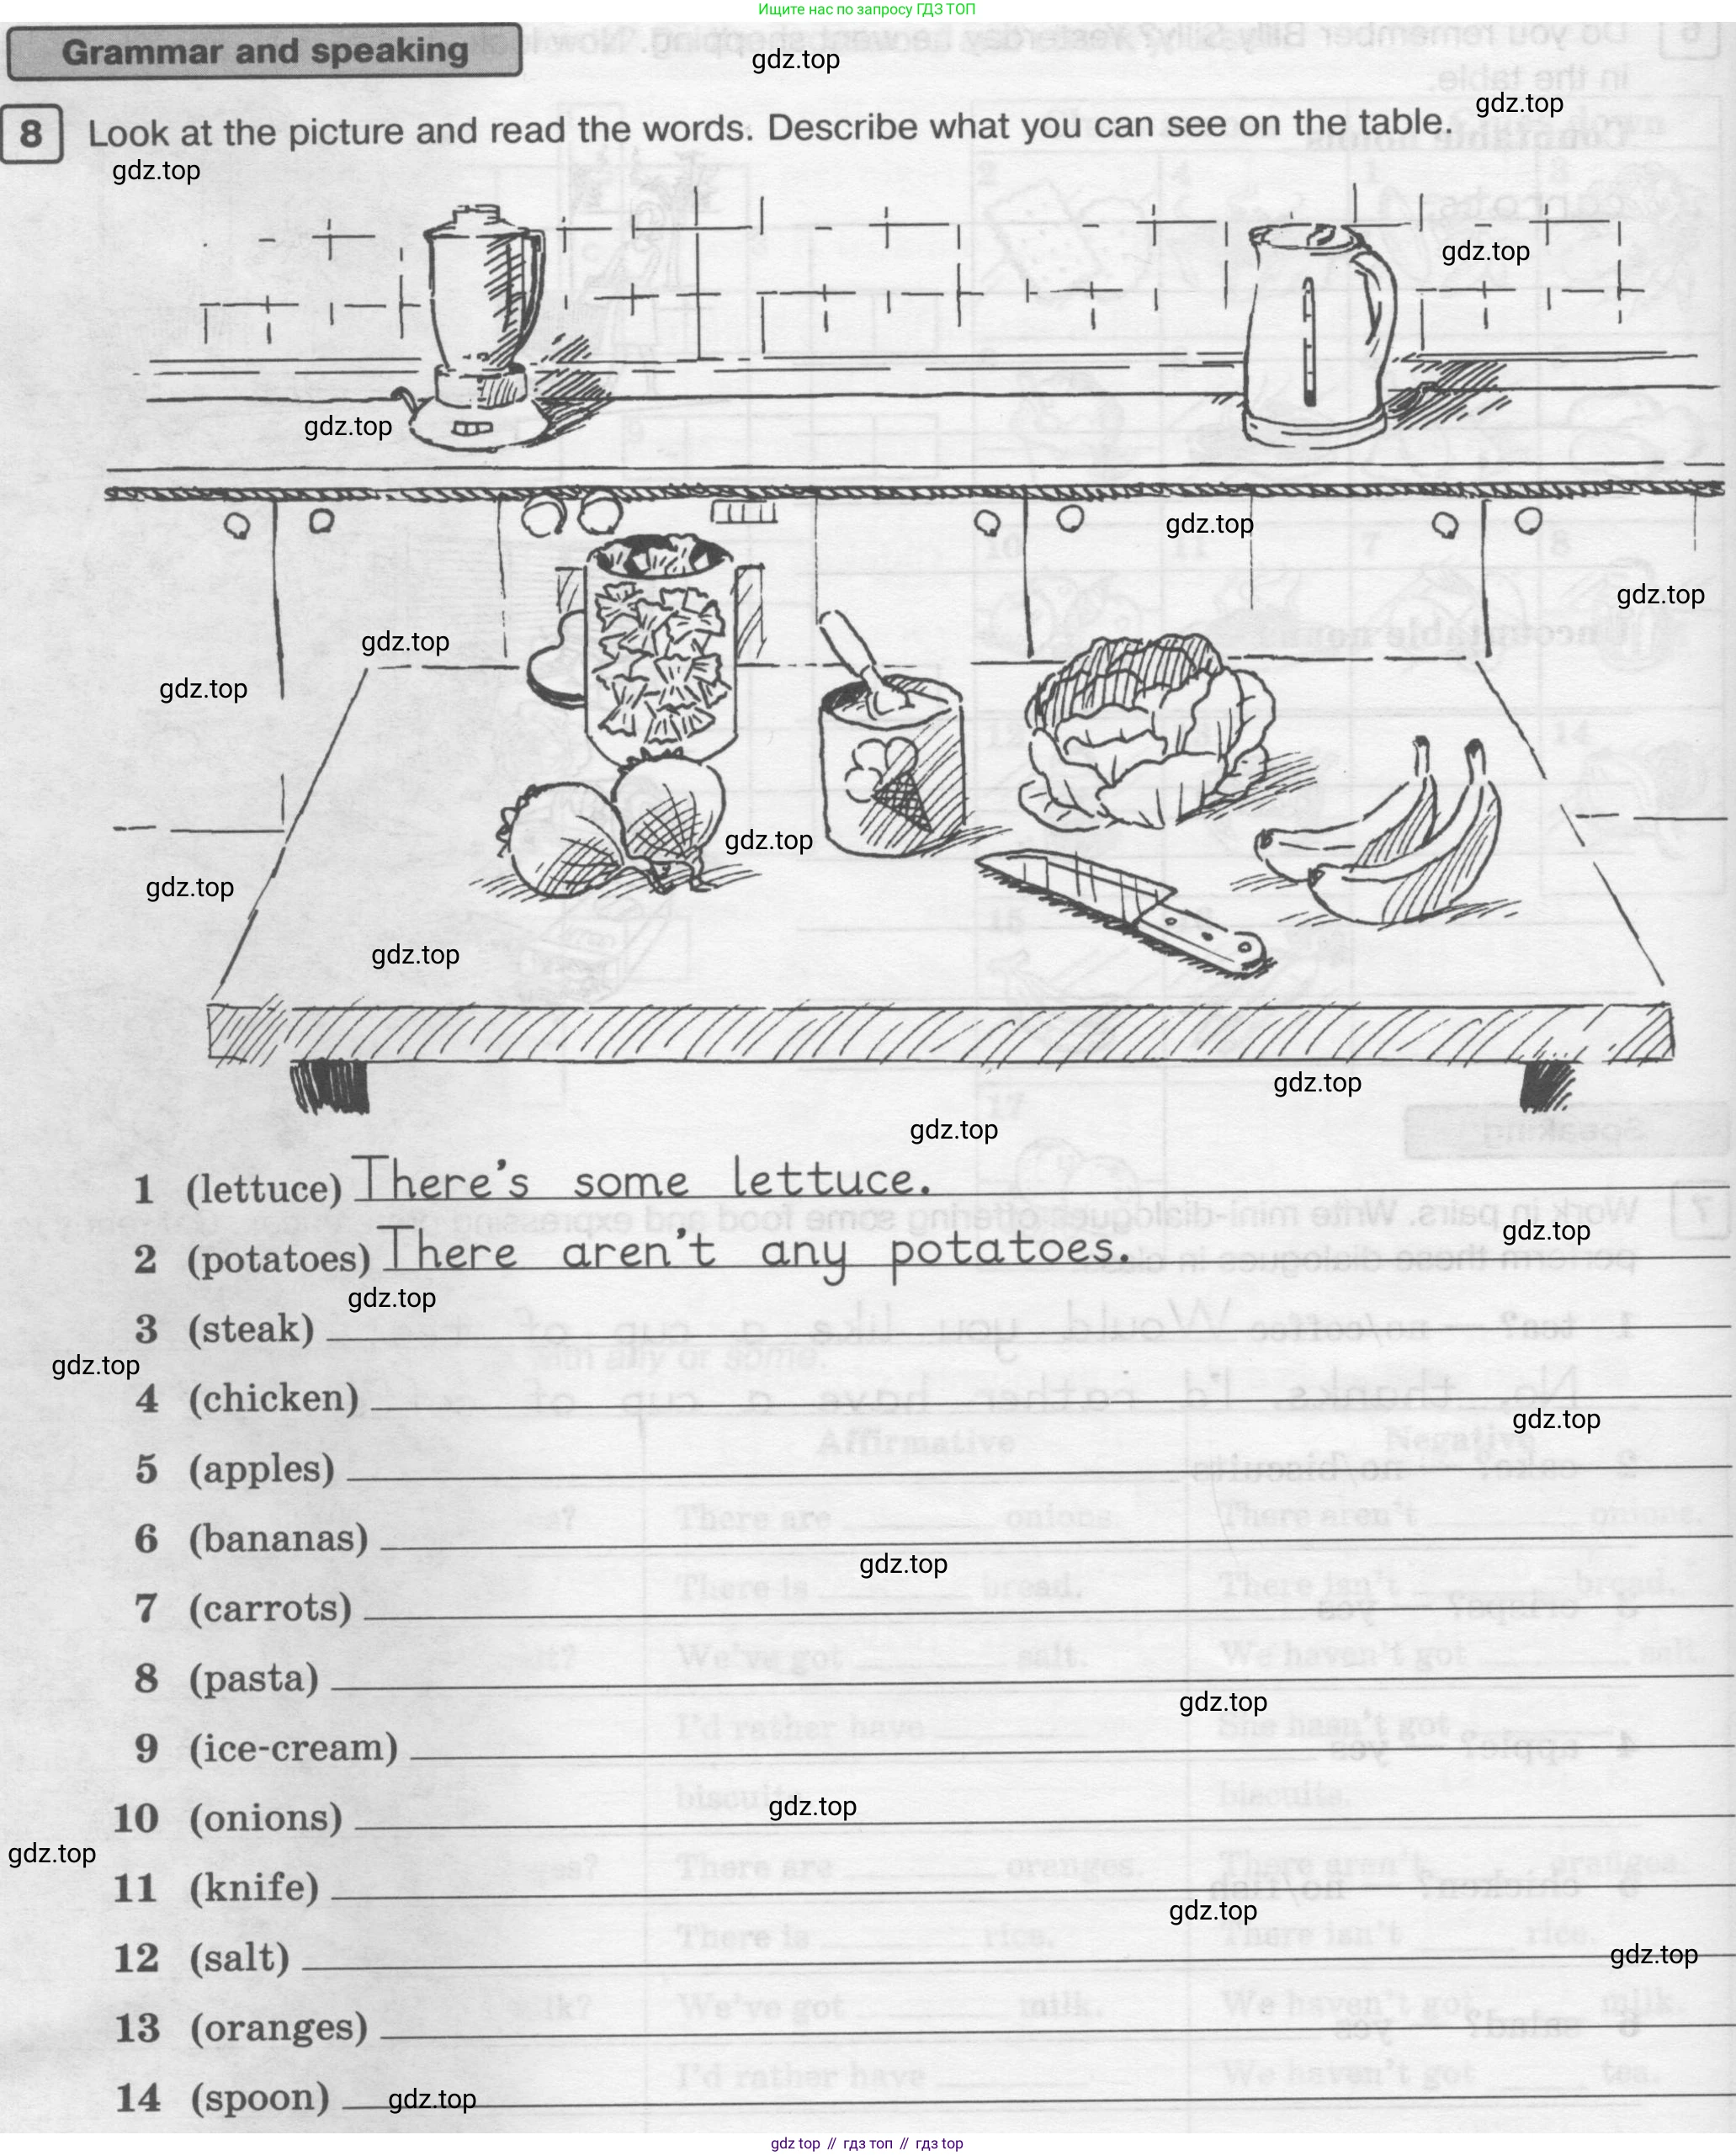 Ищите нас по запросу ГДЗ ТОП
Grammar and speaking
gdz.top
gdz.top
8 Look at the picture and read the words. Describe what you can see on the table.
gdz.top
gdz.top
gdz.top
gdz.top
gdz.top
gdz.top
gdz.top
gdz.top
gdz.top
gdz.top
gdz.top
gdz.top
1 (lettuce) There's some lettuce.
2 (potatoes) There aren't any potatoes.
gdz.top
gdz.top
3 (steak)
gdz.top
4 (chicken)
gdz.top
5 (apples)
6 (bananas)
gdz.top
7 (carrots)
8 (pasta)
gdz.top
9 (ice-cream)
10 (onions)
gdz.top
gdz.top
11 (knife)
gdz.top
12 (salt)
gdz.top
13 (oranges)
14 (spoon)
gdz.top
gdz top // гдз топ // гдз top